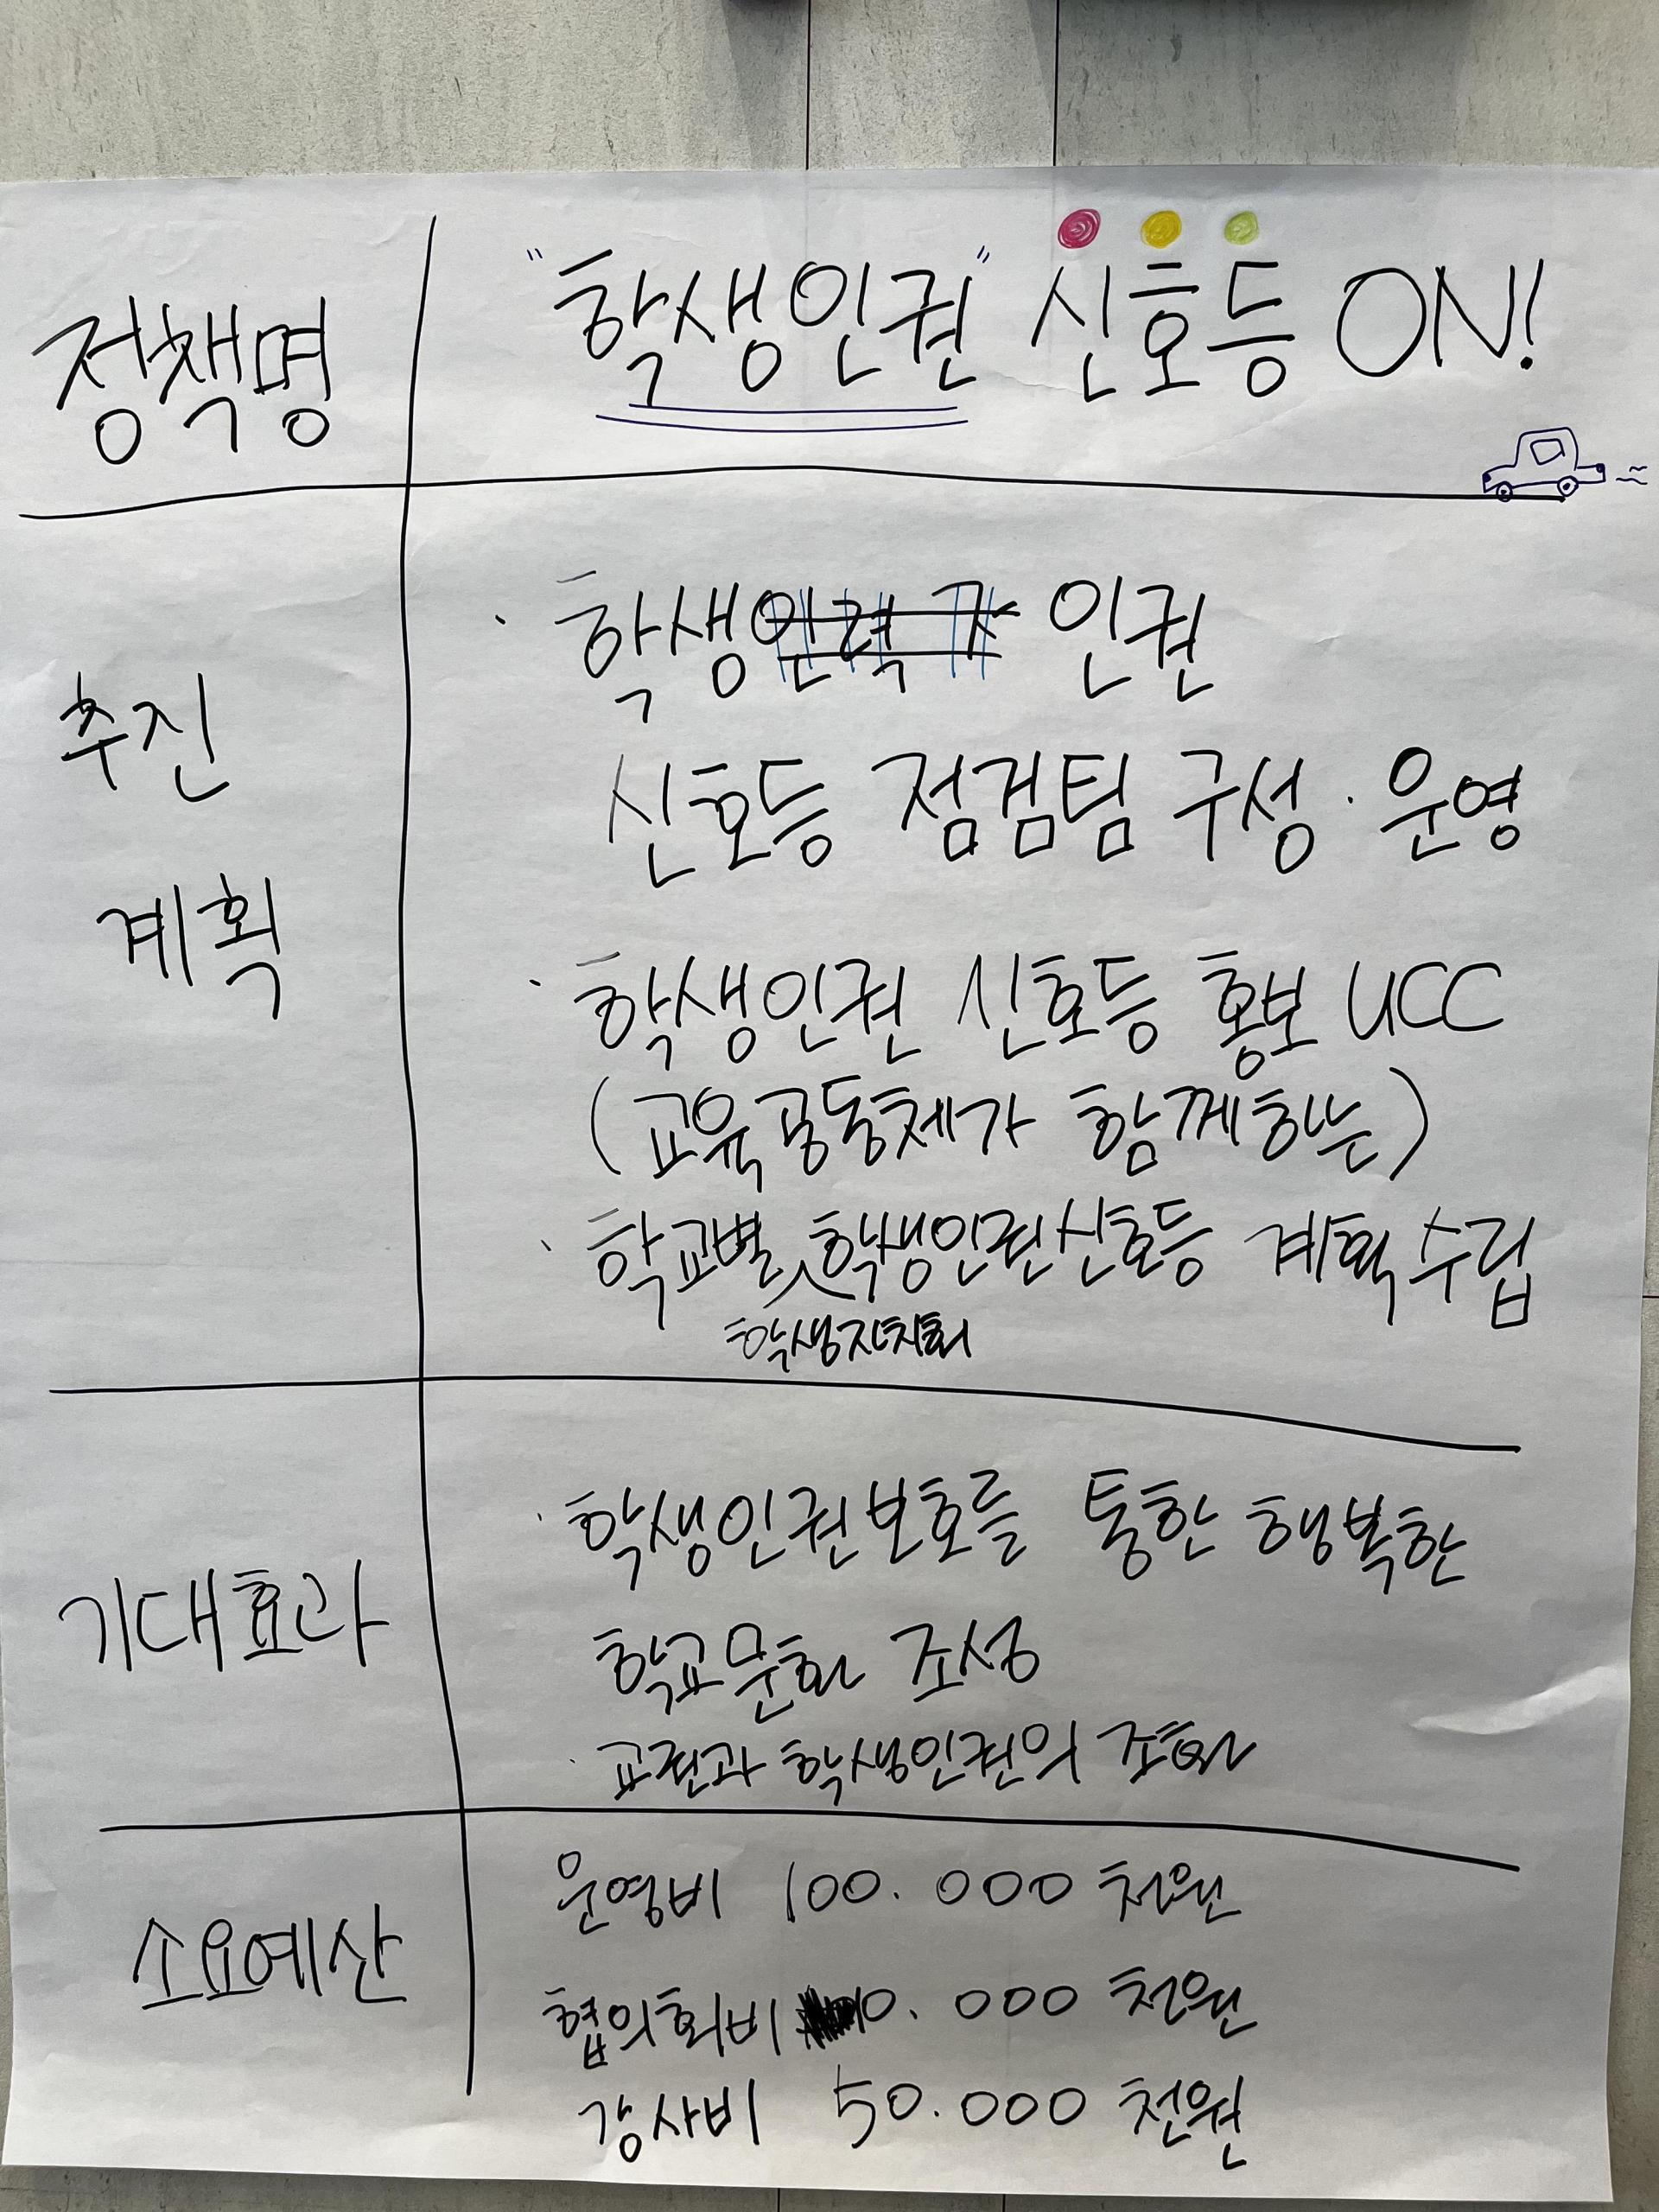 정책명
"학생인권" 신호등 ON!
추진
계획
· 학생 인권
신호등 점검팀 구성·운영
· 학생인권 신호등 홍보 UCC
(교육공동체가 함께하는)
· 학교별 학생인권신호등 계획수립
학생자치회
기대효과
· 학생인권보호를 통한 행복한
학교문화 조성
· 교권과 학생인권의 조화
소요예산
운영비 100.000 천원
협의회비 0.000 천원
강사비 50.000 천원